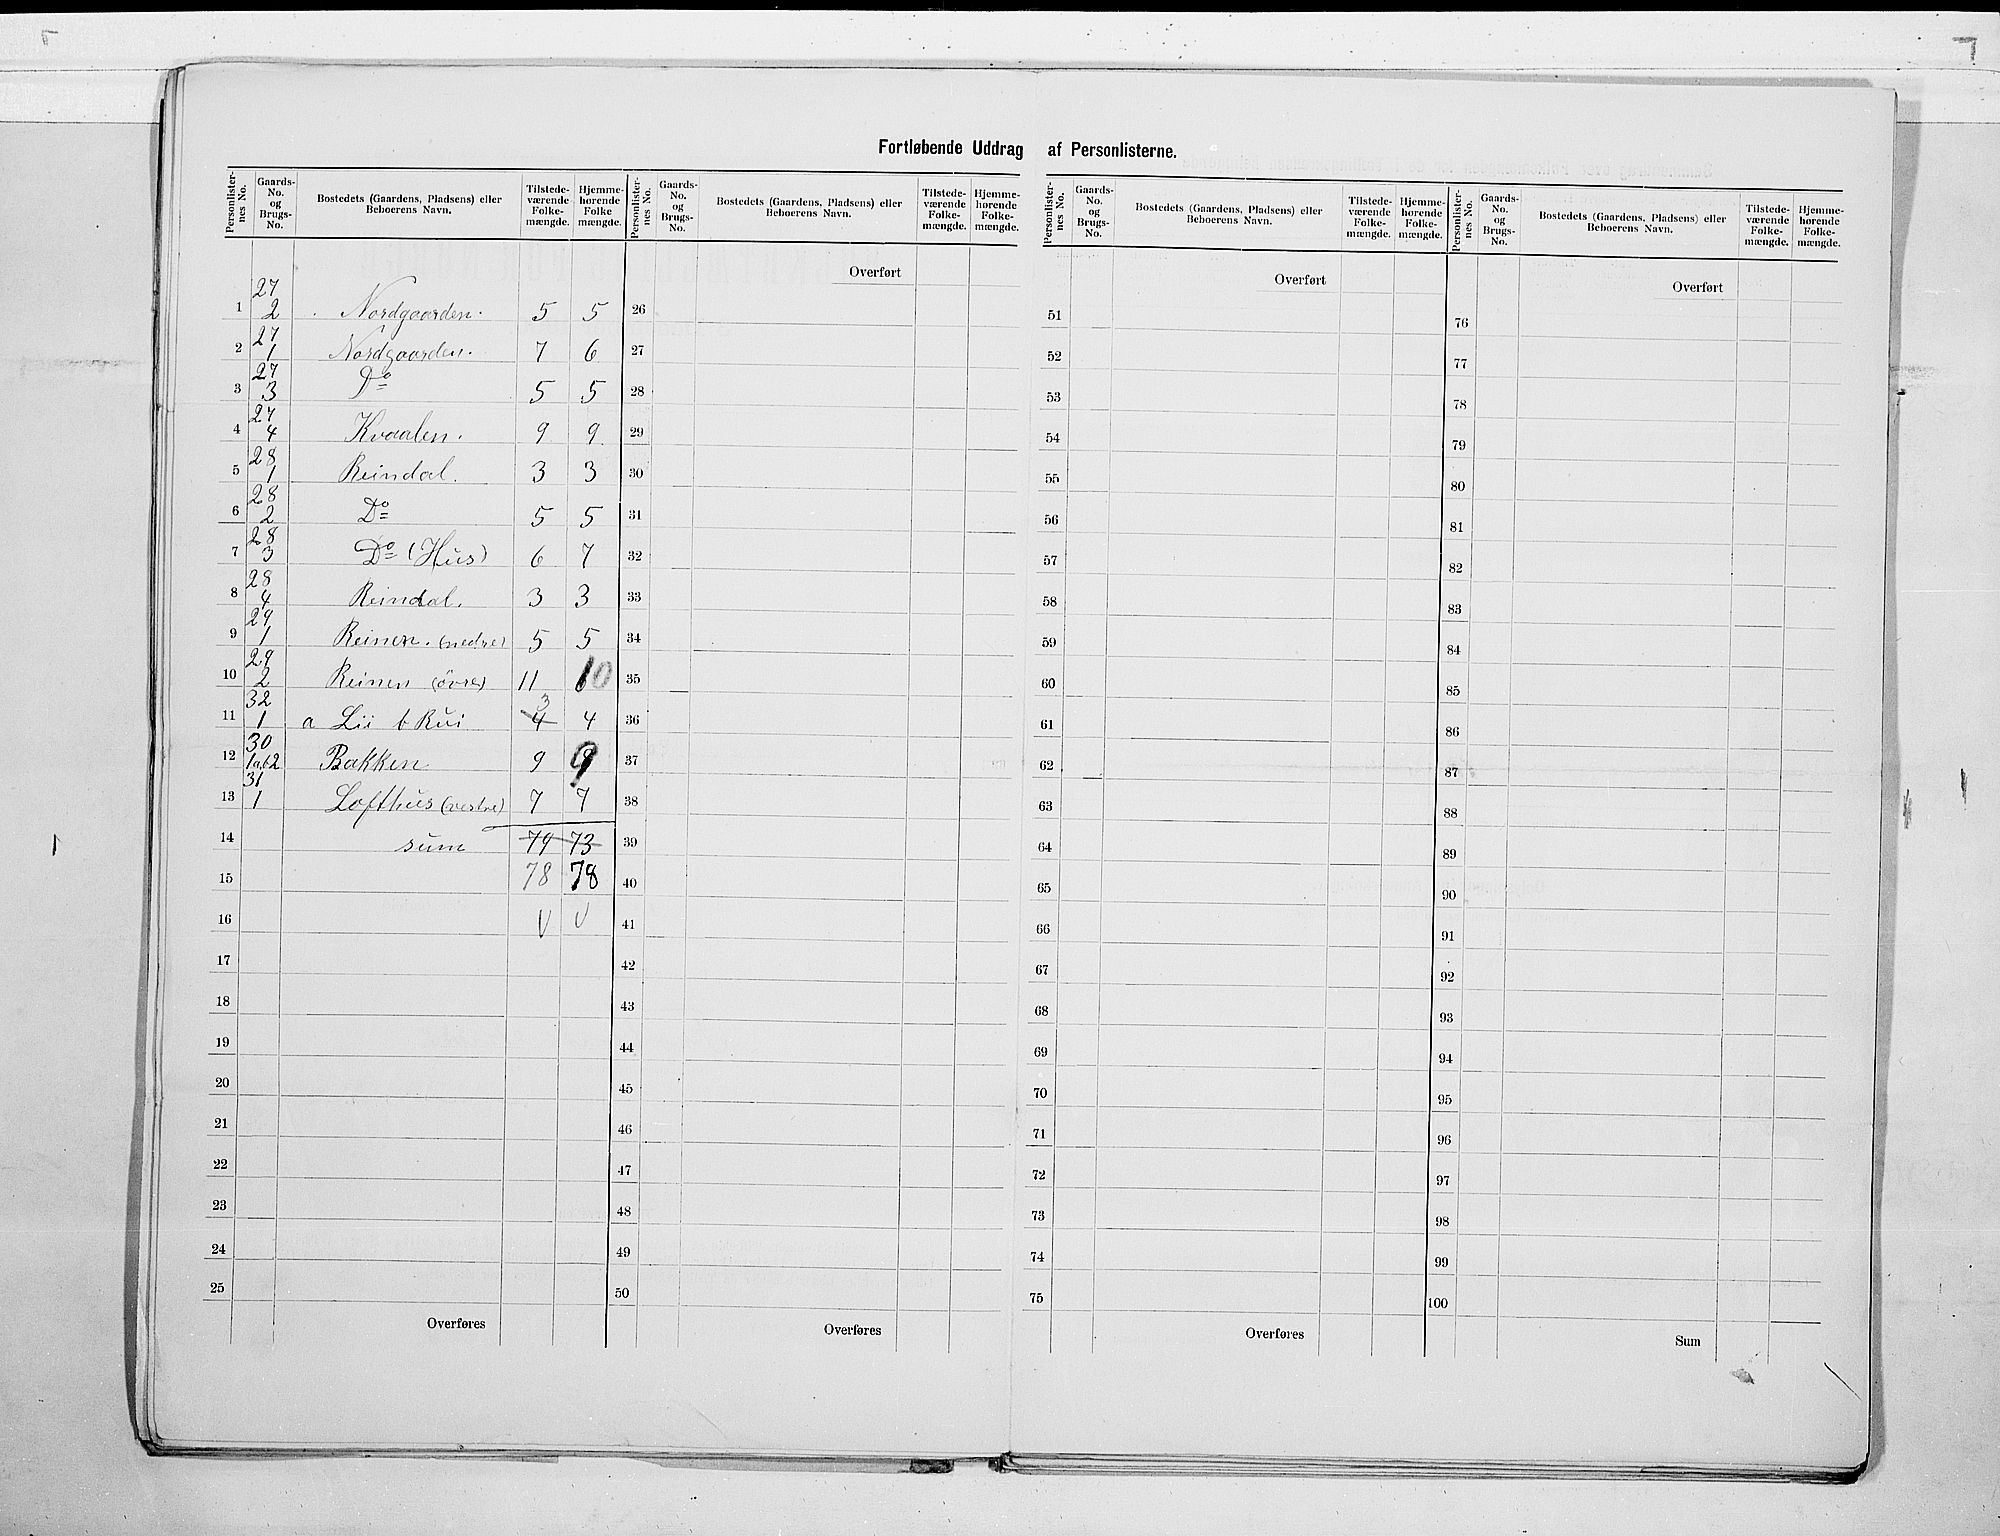 Fortløbende Uddrag af Personlisterne.
Personlister-nes No. Gaards-No. og Brugs-No. Bostedets (Gaardens, Pladsens) eller Beboerens Navn. Tilstede-værende Folke-mængde. Hjemme-hørende Folke mængde.
27
1 2 Nordgaarden. 5 5
27
2 1 Nordgaarden. 7 6
27
3 3 Do 5 5
27
4 4 Kvaalen. 9 9
28
5 1 Reindal. 3 3
28
6 2 Do 5 5
28
7 3 Do (Hus) 6 7
28
8 4 Reindal. 3 3
29
9 1 Reinen. (nedre) 5 5
29
10 2 Reinen (övre) 11 10
32 3
11 1 a Lii b Rui 4 4
30
12 1a,b2 Bakken 9 9
31
13 1 Lofthus (vestre) 7 7
14 sum 79 73
15 78 78
16 V V
17
18
19
20
21
22
23
24
25
Overføres
Personlister-nes No. Gaards-No. og Brugs-No. Bostedets (Gaardens, Pladsens) eller Beboerens Navn. Tilstede-værende Folke-mængde. Hjemme-hørende Folke-mængde.
Overført
26
27
28
29
30
31
32
33
34
35
36
37
38
39
40
41
42
43
44
45
46
47
48
49
50
Overføres
Personlister-nes No. Gaards-No. og Brugs-No. Bostedets (Gaardens, Pladsens) eller Beboerens Navn. Tilstede-værende Folke-mængde. Hjemme-hørende Folke-mængde.
Overført
51
52
53
54
55
56
57
58
59
60
61
62
63
64
65
66
67
68
69
70
71
72
73
74
75
Overføres
Personlister-nes No. Gaards-No. og Brugs-No. Bostedets (Gaardens, Pladsens) eller Beboerens Navn. Tilstede-værende Folke-mængde. Hjemme-hørende Folke-mængde.
Overført
76
77
78
79
80
81
82
83
84
85
86
87
88
89
90
91
92
93
94
95
96
97
98
99
100
Sum